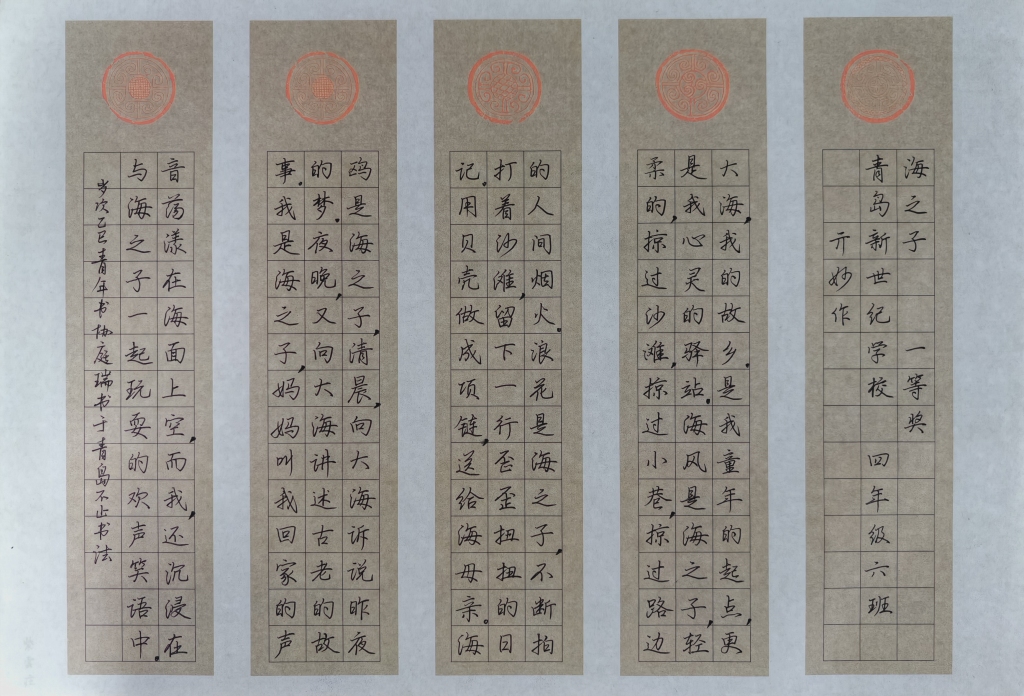 海之子 一等奖
青岛新世纪学校 四年级六班
亓妙作
大海，我的故乡。是我童年的起点，更
是我心灵的驿站。海风是海之子，轻
柔的，掠过沙滩，掠过小巷，掠过路边
的人间烟火。浪花是海之子，不断拍
打着沙滩，留下一行歪歪扭扭的日
记。用贝壳做成项链，送给海母亲。海
鸥是海之子，清晨，向大海诉说昨夜
的梦。夜晚，又向大海讲述古老的故
事。我是海之子，妈妈叫我回家的声
音荡漾在海面上空，而我，还沉浸在
与海之子一起玩耍的欢声笑语中。
岁次乙巳青年书协庭瑞书于青岛不止书法